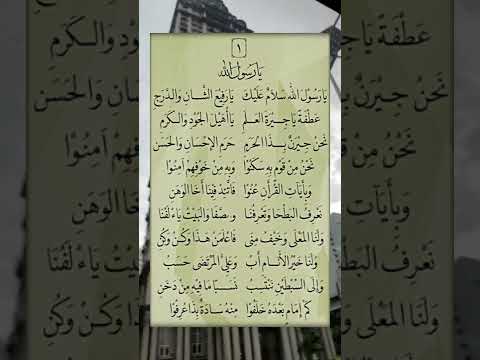 ١
يَارَسُوْلَ اللّٰه
يَارَسُوْلَ اللّٰه سَلَامٌ عَلَيْكَ يَارَفِيْعَ الشَّانِ وَالدَّرَجِ
عَطْفَةً يَاجِيْرَةَ الْعَلَمِ يَاأُهَيْلَ الْجُوْدِ وَالْكَرَمِ
نَحْنُ جِيْرَنٌ بِذَا الْحَرَمِ حَرَمِ الْإِحْسَانِ وَالْحَسَنِ
نَحْنُ مِنْ قَوْمٍ بِهِ سَكَنُوْا وَبِهِ مِنْ خَوْفِهِمْ اَمِنُوْا
وَبِأٰيَاتِ الْقُرْأٰنِ عُنُوْا فَاتَّئِدْ فِيْنَا أَخَا الْوَهَنِ
نَعْرِفُ الْبَطْحَا وَتَعْرِفُنَا وَالْبَيْتُ يَاءْلَفُنَا
وَلَنَا الْمَعْلٰى وَخَيْفُ مِنٰى فَاعْلَمَنْ هٰذَا وَكُنْ وَكُنِ
وَلَنَا خَيْرُ الْأَنَامِ أَبٌ وَعَلِيُّ الْمُرْتَضٰى حَسَبُ
وَإِلَى السِّبْطَيْنِ نَنْتَسِبُ نَسَبًا مَافِيْهِ مِنْ دَخَنِ
كَمْ إِمَامٍ بَعْدَهُ خَلَفُوْا مِنْهُ سَادَةٌ بِذَا عُرِفُوْا